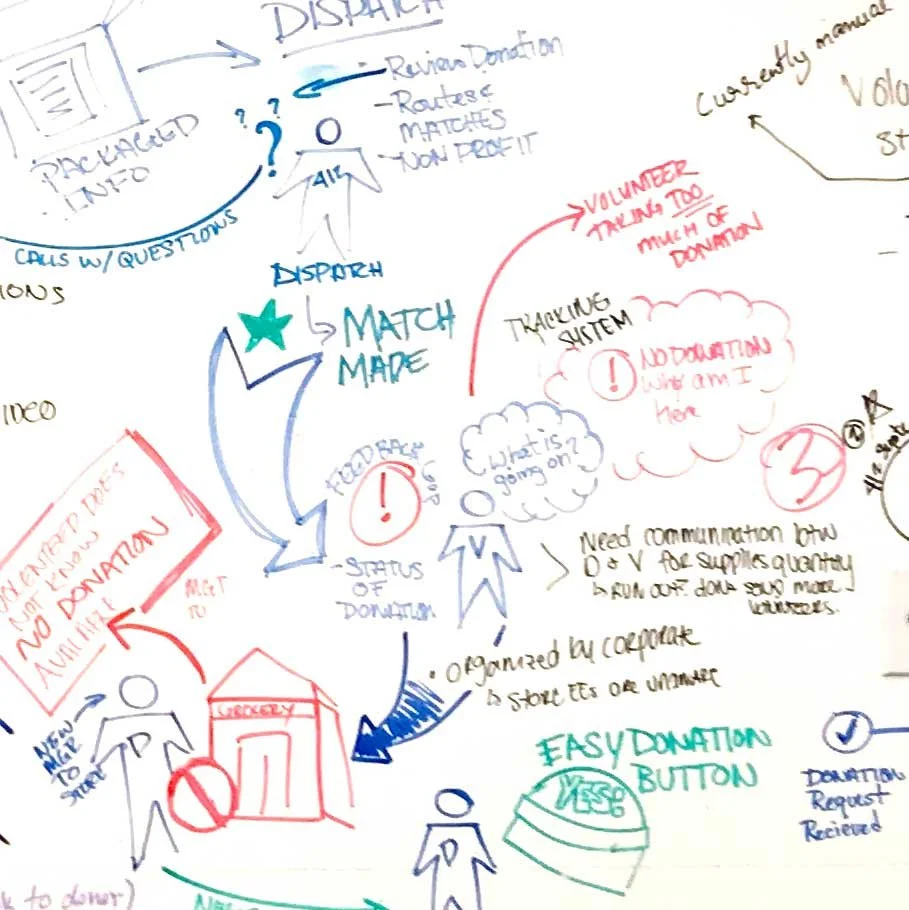 DISPATCH
Review Donation
- Routes &
MATCHES
- NON PROFIT
PACKAGED
INFO
? ? ?
CALLS W/ QUESTIONS
DISPATCH
MATCH
MADE
Currently manual
VOLUNTEER
TAKING TOO
MUCH OF
DONATION
TRACKING
SYSTEM
! NO DONATION
Why am I
Here
IONS
IDEO
FEEDBACK
!
What is
going on?
V
3
- STATUS
OF
DONATION
Need communication btw
D & V for supplies quantity
RUN OUT. dont send more
volunteers.
• Organized by corporate
STORE EEs are unaware
DOES
NOT KNOW
NO DONATION
AVAILABLE
MGT
TO
GROCERY
NEW
MGR
TO
STORE
D
EASY DONATION
BUTTON
YESS!
DONATION
Request
Recieved
D
k to donor)